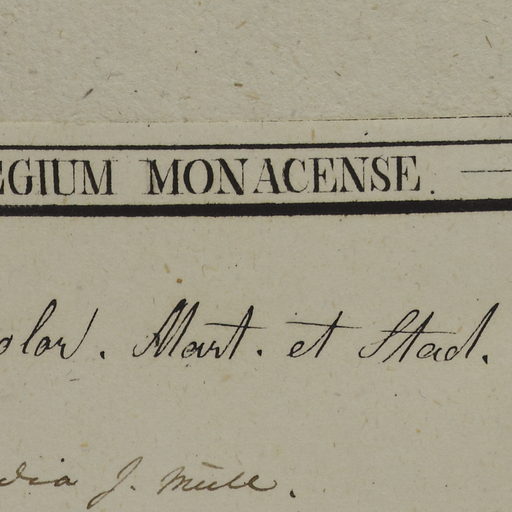 EGIUM MONACENSE.
olor. Mart. et Stad.
dia J. Müll.